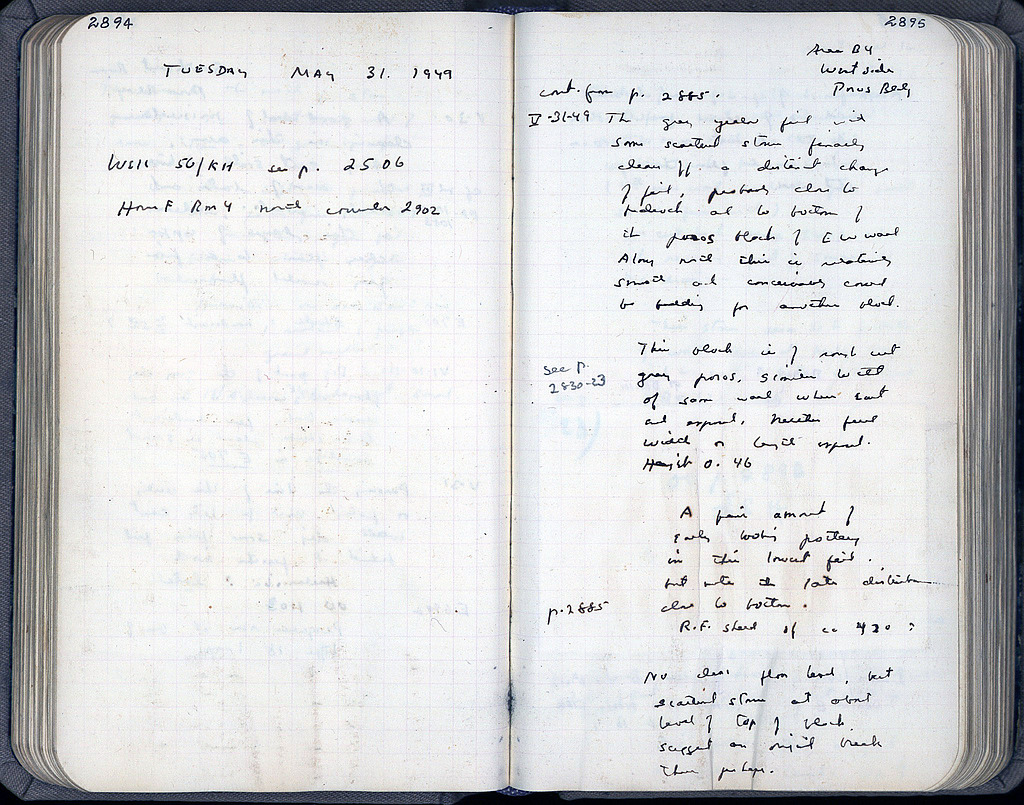 2894
TUESDAY MAY 31. 1949
Well 56/KH see p. 2506
House F Rm 4 north corridor 2902
2895
Area B4
West side
Poros Bldg
cont. from p. 2885.
V-31-49 The gray green fill with
some scattered stones finally
clean off. a distinct change
of fill, probably close to
bedrock at the bottom of
the poros block of E W wall
Along north this is relatively
smooth and conceivably could
be bedding for another block.
This block is of rough cut
see p.
2830-23
gray poros, similar to that
of same wall where east
end exposed. Neither full
width or length exposed.
Height 0.46
A fair amount of
early looking pottery
in this lowest fill.
but note the late disturbance
p. 2885
close to bottom.
R.F. sherd of ca 420 ?
No clear floor level, but
scattered stones at about
level of top of block
suggest an original break
there perhaps.